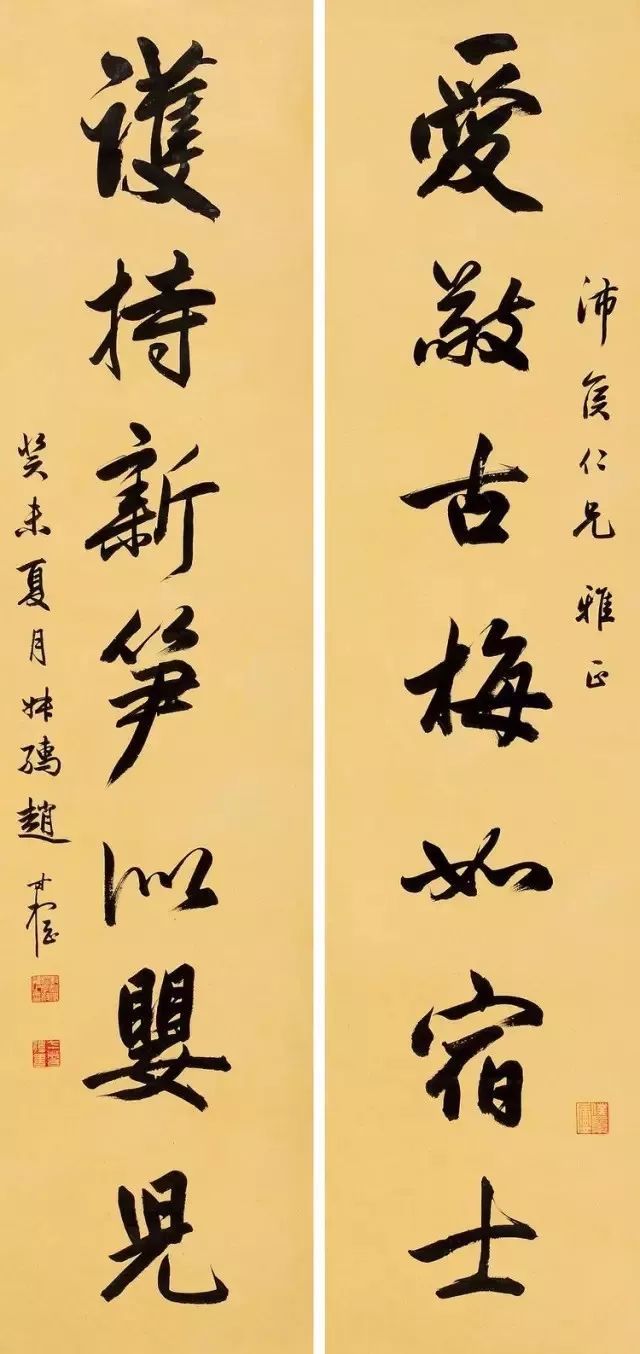 沛侯仁兄雅正
愛敬古梅如宿士
護持新笋似嬰兒
癸未夏月 趙